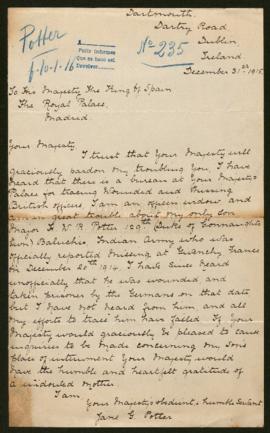 Dartmouth.
Dartry Road,
Dublin
Ireland
December 31st 1915.
Potter
6-10-1-16
Pídase informes
Que se haga así.
Devolver
No 235
To His Majesty The King of Spain
The Royal Palace,
Madrid.
Your Majesty
I trust that Your Majesty will
graciously pardon my troubling you. I have
heard that there is a bureau at Your Majesty's
Palace for tracing Wounded and Missing
British officers. I am an officers widow and
am in great trouble about my only Son
Major F. W. R. Potter 129th (Duke of Connaught's
Own) Baluchis, Indian Army who was
officially reported missing at Givenchy France
on December 20th 1914. I have since heard
unofficially that he was wounded and
taken prisoner by the Germans on that date
but I have not heard from him and all
my efforts to trace him have failed. If Your
Majesty would graciously be pleased to cause
inquiries to be made concerning my Son's
place of internment Your Majesty would
have the humble and heartfelt gratitude of
a widowed mother.
I am
Your Majesty's obedient & humble servant
Jane G. Potter